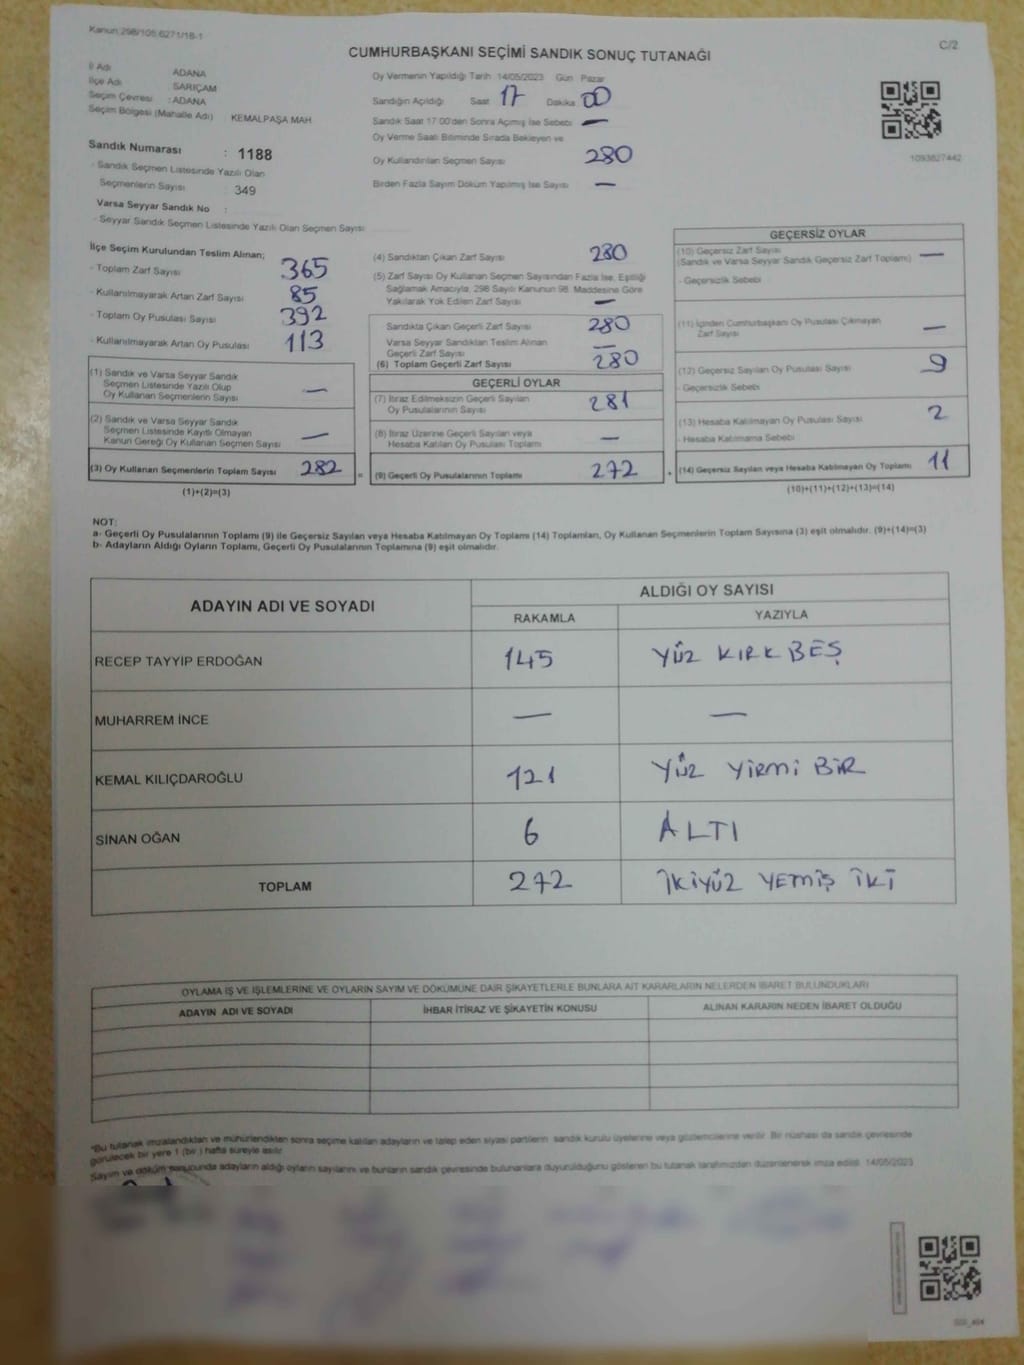 Kanun:298/105.6271/18-1
C/2
CUMHURBAŞKANI SEÇİMİ SANDIK SONUÇ TUTANAĞI
İl Adı ADANA
İlçe Adı SARIÇAM
Seçim Çevresi : ADANA
Seçim Bölgesi (Mahalle Adı) : KEMALPAŞA MAH
Sandık Numarası : 1188
- Sandık Seçmen Listesinde Yazılı Olan
Seçmenlerin Sayısı : 349
Varsa Seyyar Sandık No :
- Seyyar Sandık Seçmen Listesinde Yazılı Olan Seçmen Sayısı
Oy Vermenin Yapıldığı Tarih 14/05/2023 Gün Pazar
Sandığın Açıldığı Saat 17 Dakika 00
Sandık Saat 17:00'den Sonra Açmış İse Sebebi —
Oy Verme Saati Bitiminde Sırada Bekleyen ve
Oy Kullandırılan Seçmen Sayısı 280
Birden Fazla Sayım Döküm Yapılmış İse Sayısı —
1093827442
İlçe Seçim Kurulundan Teslim Alınan;
- Toplam Zarf Sayısı 365
- Kullanılmayarak Artan Zarf Sayısı 85
- Toplam Oy Pusulası Sayısı 392
- Kullanılmayarak Artan Oy Pusulası 113
(1) Sandık ve Varsa Seyyar Sandık
Seçmen Listesinde Yazılı Olup
Oy Kullanan Seçmenlerin Sayısı —
(2) Sandık ve Varsa Seyyar Sandık
Seçmen Listesinde Kayıtlı Olmayan
Kanun Gereği Oy Kullanan Seçmen Sayısı —
(3) Oy Kullanan Seçmenlerin Toplam Sayısı 282 =
(1)+(2)=(3)
(4) Sandıktan Çıkan Zarf Sayısı 280
(5) Zarf Sayısı Oy Kullanan Seçmen Sayısından Fazla İse, Eşitliği
Sağlamak Amacıyla, 298 Sayılı Kanunun 98. Maddesine Göre
Yakılarak Yok Edilen Zarf Sayısı —
Sandıkta Çıkan Geçerli Zarf Sayısı 280
Varsa Seyyar Sandıktan Teslim Alınan
Geçerli Zarf Sayısı —
(6) Toplam Geçerli Zarf Sayısı 280
GEÇERLİ OYLAR
(7) İtiraz Edilmeksizin Geçerli Sayılan
Oy Pusulalarının Sayısı 281
(8) İtiraz Üzerine Geçerli Sayılan veya
Hesaba Katılan Oy Pusulası Toplamı —
(9) Geçerli Oy Pusulalarının Toplamı 272 +
GEÇERSİZ OYLAR
(10) Geçersiz Zarf Sayısı
(Sandık ve Varsa Seyyar Sandık Geçersiz Zarf Toplamı) —
- Geçersizlik Sebebi
(11) İçinden Cumhurbaşkanı Oy Pusulası Çıkmayan
Zarf Sayısı —
(12) Geçersiz Sayılan Oy Pusulası Sayısı 9
- Geçersizlik Sebebi
(13) Hesaba Katılmayan Oy Pusulası Sayısı 2
- Hesaba Katılmama Sebebi
(14) Geçersiz Sayılan veya Hesaba Katılmayan Oy Toplamı 11
(10)+(11)+(12)+(13)=(14)
NOT:
a- Geçerli Oy Pusulalarının Toplamı (9) ile Geçersiz Sayılan veya Hesaba Katılmayan Oy Toplamı (14) Toplamları, Oy Kullanan Seçmenlerin Toplam Sayısına (3) eşit olmalıdır. (9)+(14)=(3)
b- Adayların Aldığı Oyların Toplamı, Geçerli Oy Pusulalarının Toplamına (9) eşit olmalıdır.
ADAYIN ADI VE SOYADI
ALDIĞI OY SAYISI
RAKAMLA YAZIYLA
RECEP TAYYİP ERDOĞAN 145 YÜZ KIRK BEŞ
MUHARREM İNCE — —
KEMAL KILIÇDAROĞLU 121 YÜZ YİRMİ BİR
SİNAN OĞAN 6 ALTI
TOPLAM 272 İKİYÜZ YEMİŞ İKİ
OYLAMA İŞ VE İŞLEMLERİNE VE OYLARIN SAYIM VE DÖKÜMÜNE DAİR ŞİKAYETLERLE BUNLARA AİT KARARLARIN NELERDEN İBARET BULUNDUKLARI
ADAYIN ADI VE SOYADI İHBAR İTİRAZ VE ŞİKAYETİN KONUSU ALINAN KARARIN NEDEN İBARET OLDUĞU
*Bu tutanak imzalandıktan ve mühürlendikten sonra seçime katılan adayların ve talep eden siyasi partilerin sandık kurulu üyelerine veya gözlemcilerine verilir. Bir nüshası da sandık çevresinde
görülecek bir yere 1 (bir) hafta süreyle asılır.
Sayım ve döküm sonucunda adayların aldığı oyların sayılarını ve bunların sandık çevresinde bulunanlara duyurulduğunu gösteren bu tutanak tarafımızdan düzenlenerek imza edildi. 14/05/2023